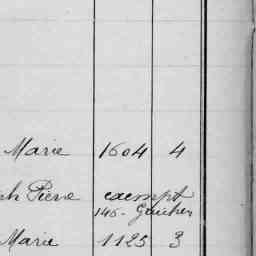 Marie 1604 4
ph Pierre exempt
145- Gaucher
Marie 1125 3